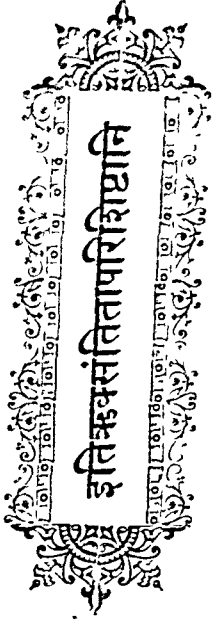 इतिऋक्संहितापरिशिष्टानि